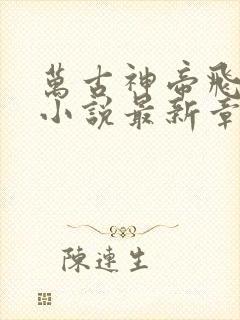 萬古神帝飛
小說最新章
陳連生